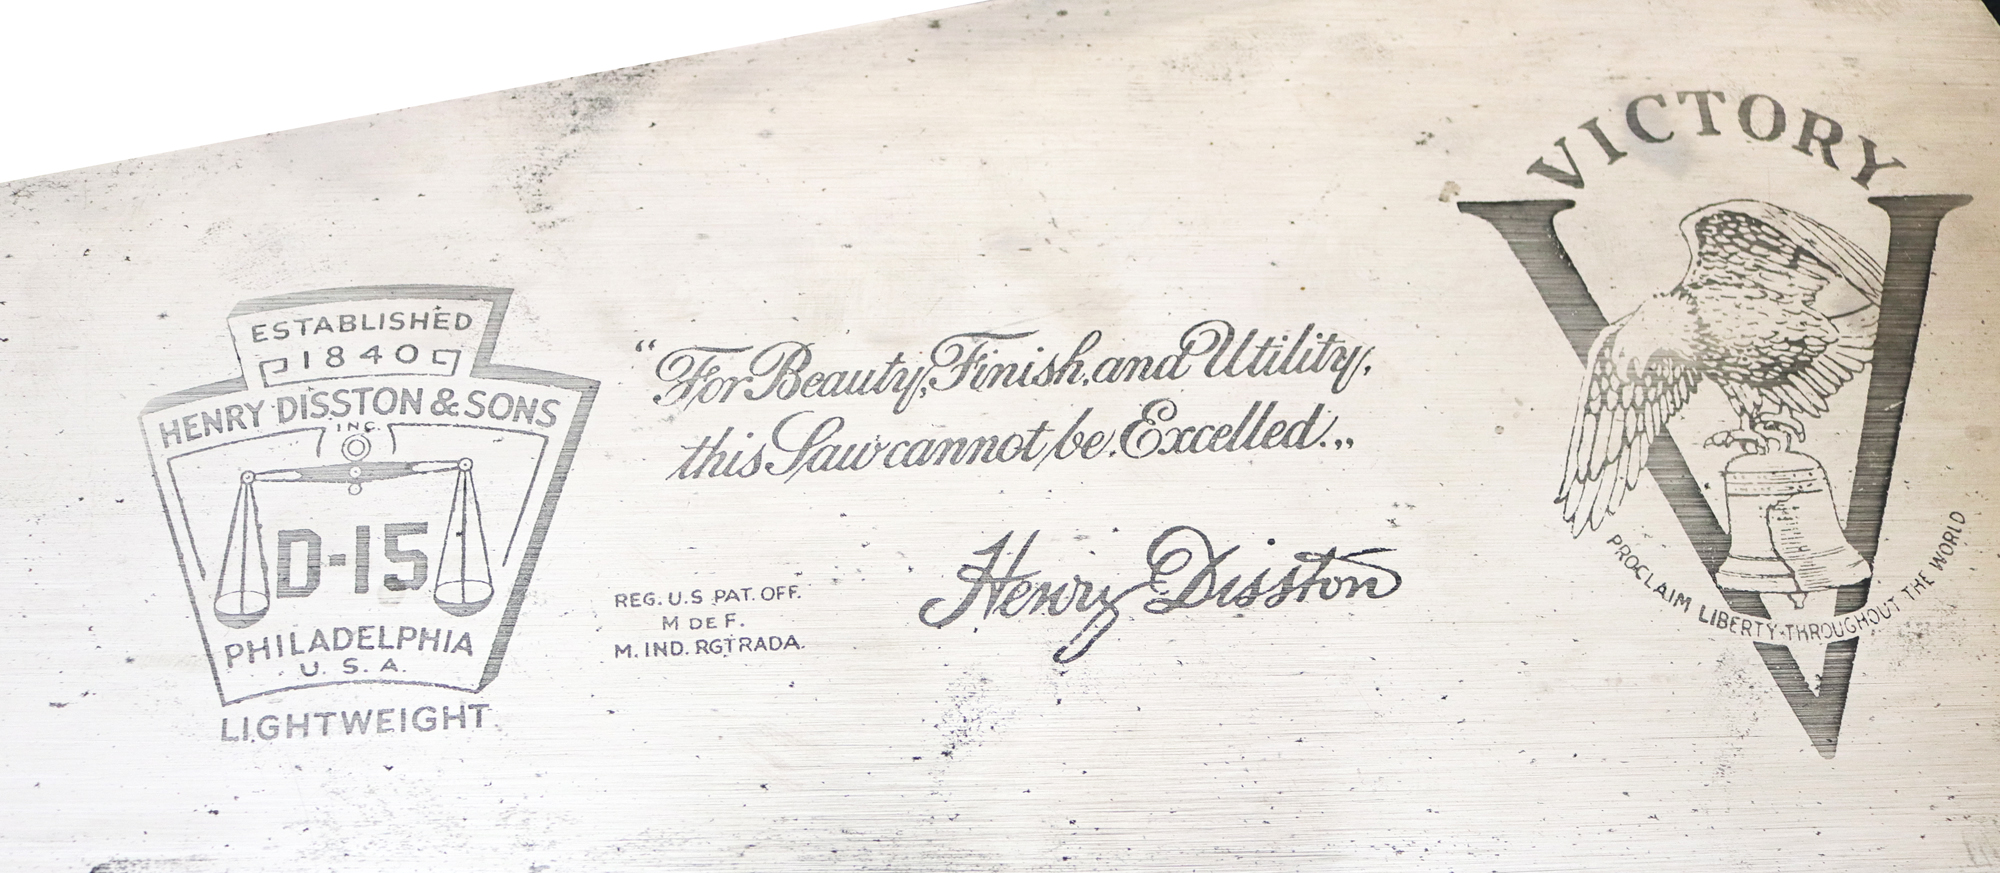 ESTABLISHED
1840
HENRY DISSTON & SONS
INC.
D-15
PHILADELPHIA
U. S. A.
LIGHTWEIGHT
"For Beauty, Finish, and Utility,
this Saw cannot be Excelled."
Henry Disston
REG. U.S. PAT. OFF.
M DE F.
M. IND. RGTRADA.
VICTORY
PROCLAIM LIBERTY-THROUGHOUT THE WORLD